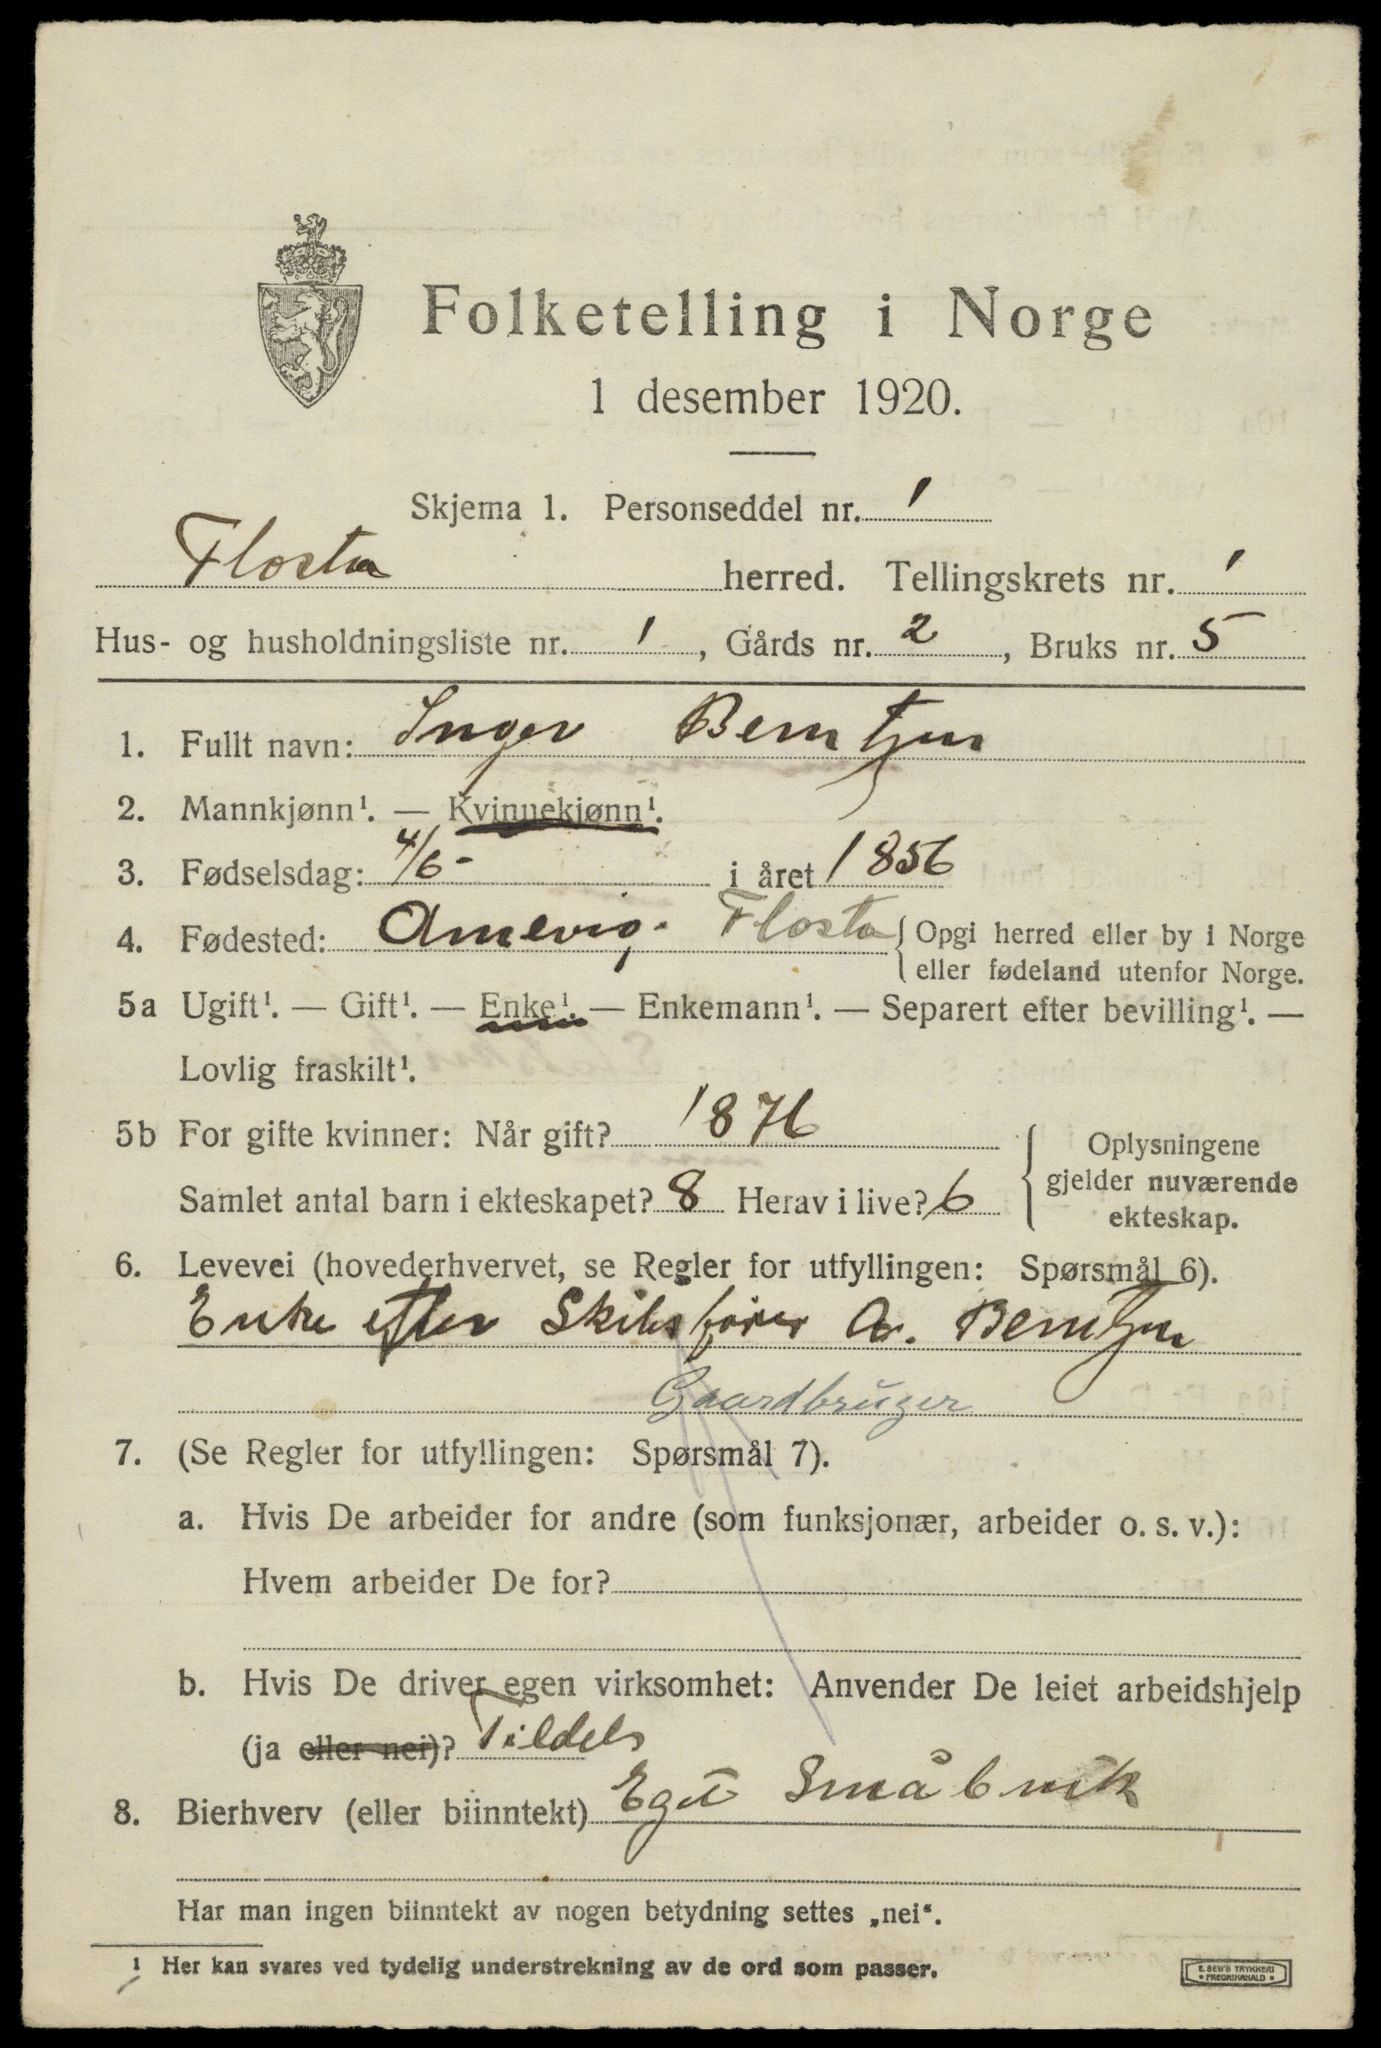 Folketelling i Norge
1 desember 1920.
Skjema 1. Personseddel nr. 1
Flosta herred. Tellingskrets nr. 1
Hus- og husholdningsliste nr. 1, Gårds nr. 2, Bruks nr. 5
1. Fullt navn: Inger Berntzen
2. Mannkjønn¹. — Kvinnekjønn¹.
3. Fødselsdag: 4/6- i året 1856
4. Fødested: Arnevig. Flosta { Opgi herred eller by i Norge
eller fødeland utenfor Norge.
5a Ugift¹. — Gift¹. — Enke¹. — Enkemann¹. — Separert efter bevilling¹. —
Lovlig fraskilt¹.
5b For gifte kvinner: Når gift? 1876
Samlet antal barn i ekteskapet? 8 Herav i live? 6
Oplysningene
gjelder nuværende
ekteskap.
6. Levevei (hovederhvervet, se Regler for utfyllingen: Spørsmål 6).
Enke efter Skibsfører A. Berntzen
Gaardbruger
7. (Se Regler for utfyllingen: Spørsmål 7).
a. Hvis De arbeider for andre (som funksjonær, arbeider o. s. v.):
Hvem arbeider De for?
b. Hvis De driver egen virksomhet: Anvender De leiet arbeidshjelp
(ja eller nei)? Tildels
8. Bierhverv (eller biinntekt) Eget Småbruk
Har man ingen biinntekt av nogen betydning settes „nei“.
¹ Her kan svares ved tydelig understrekning av de ord som passer.
E. SEM'S TRYKKERI
• FREDRIKSHALD •